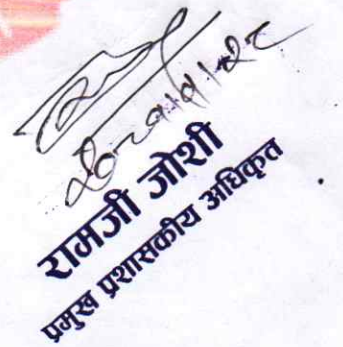 रामजी जोशी
प्रमुख प्रशासकीय अधिकृत